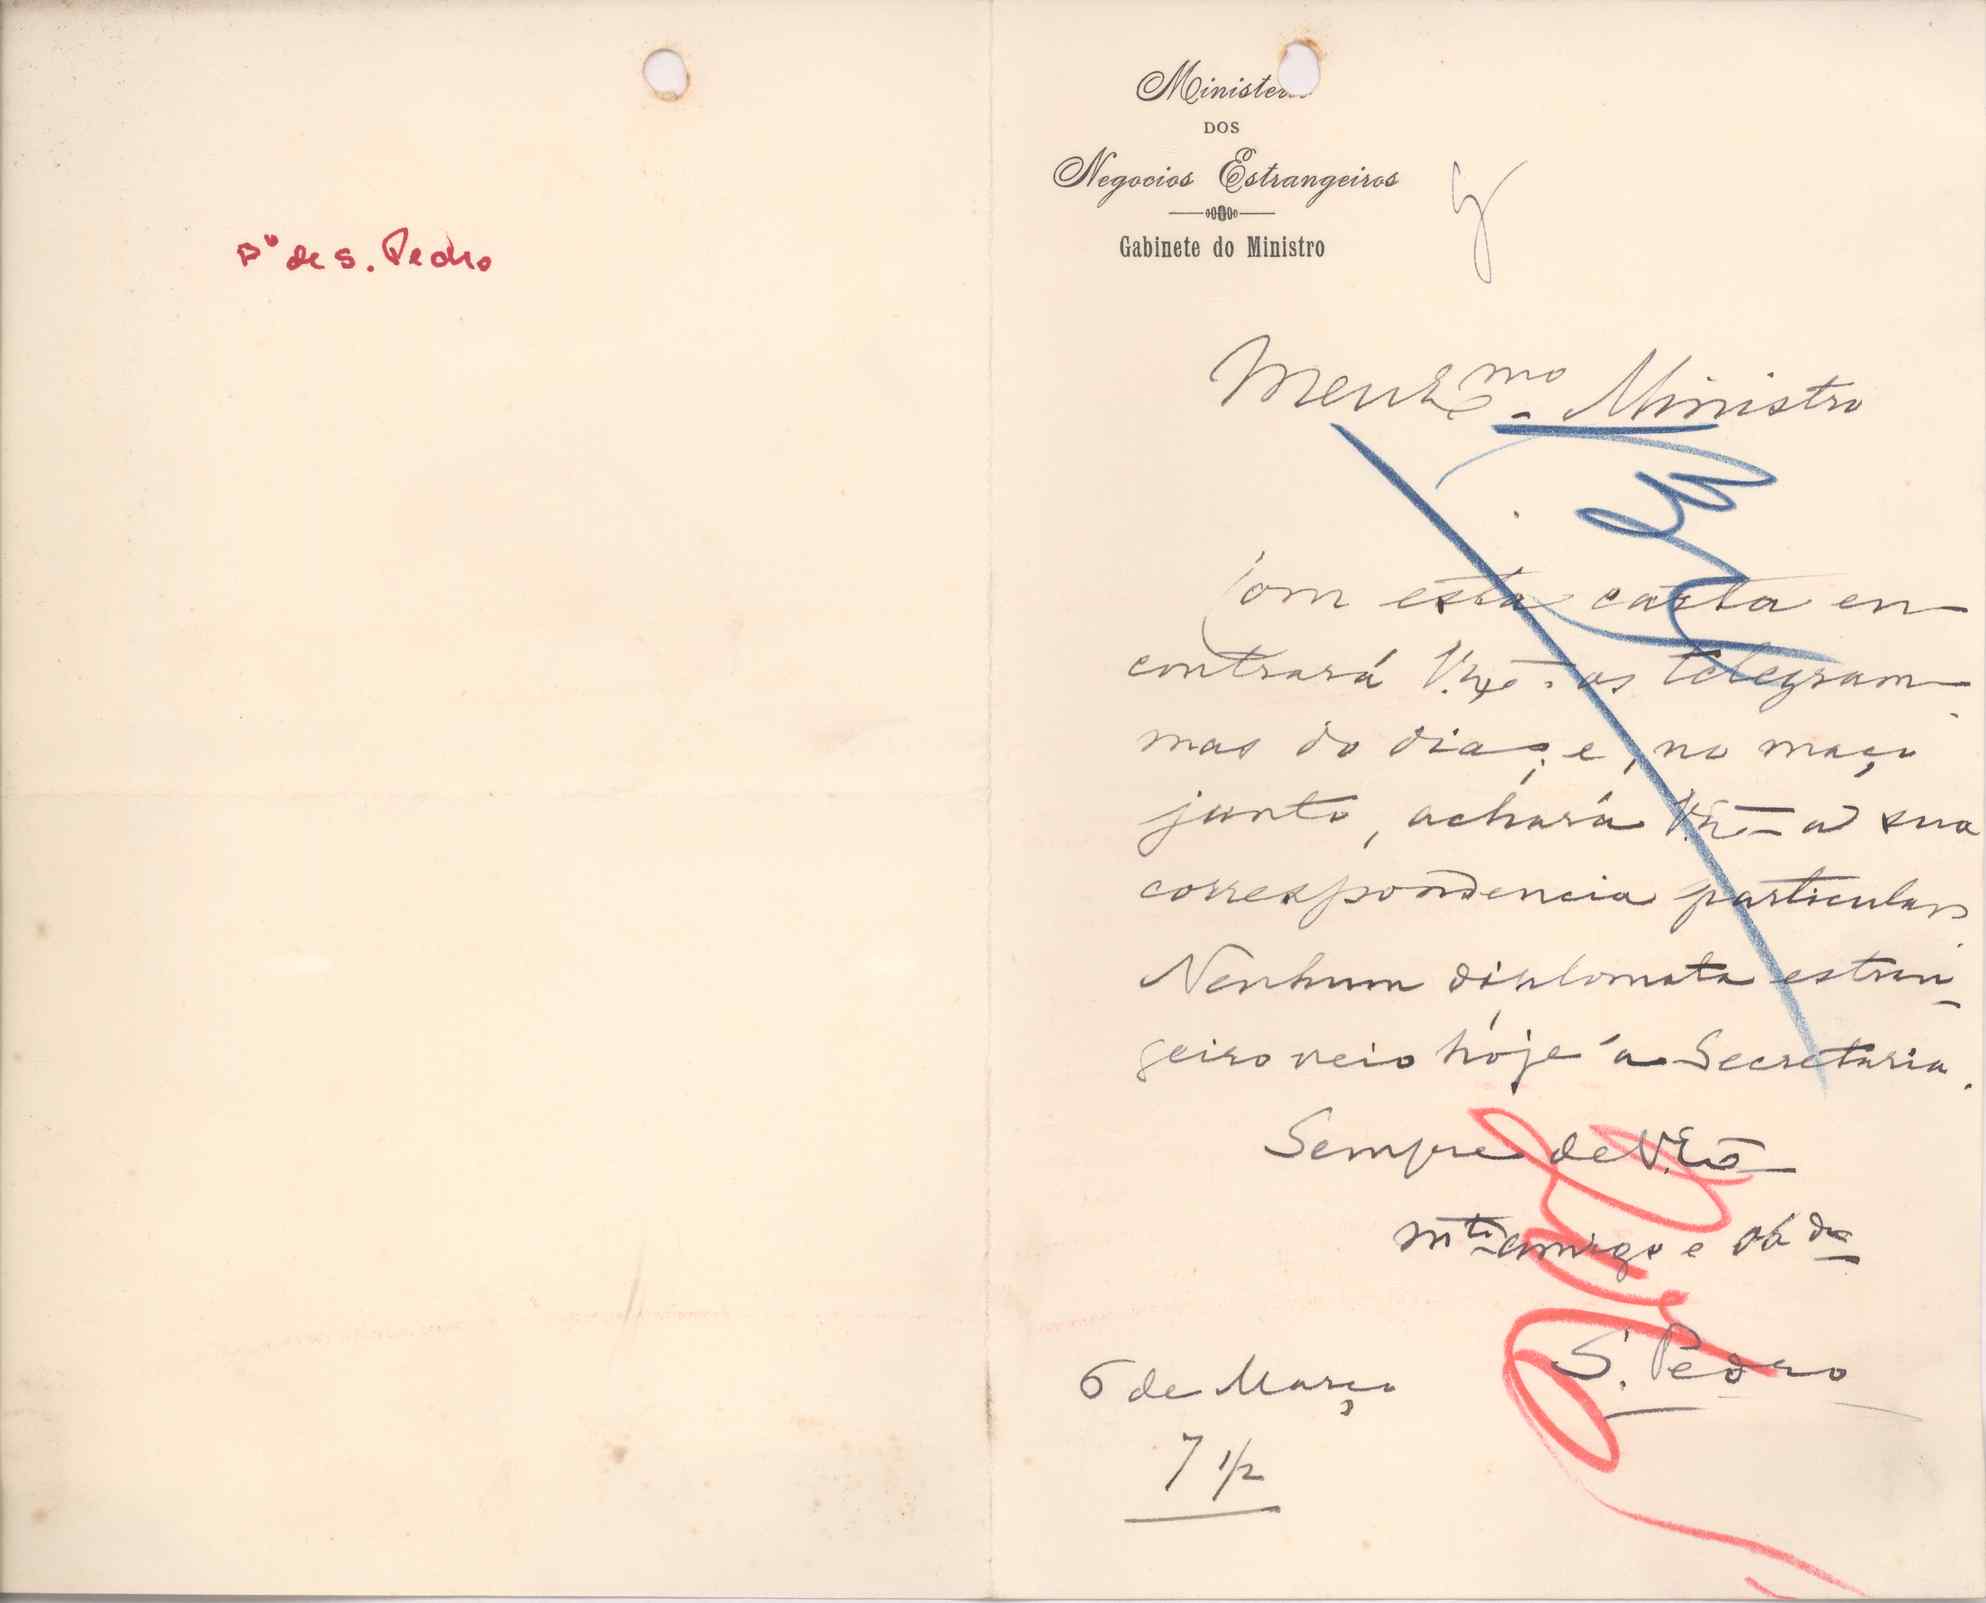 Bº de S. Pedro
Ministerio
DOS
Negocios Estrangeiros
Gabinete do Ministro
Meu Exmo. Ministro
Com esta carta en-
contrará V. Exª os telegram-
mas do dia; e, no maço
junto, achará V. Exª a sua
correspondencia particular.
Nenhum diplomata estran-
geiro veio hoje á Secretaria.
Sempre de V. Exª
mto amigo e obdo
S. Pedro
6 de Março
7 1/2